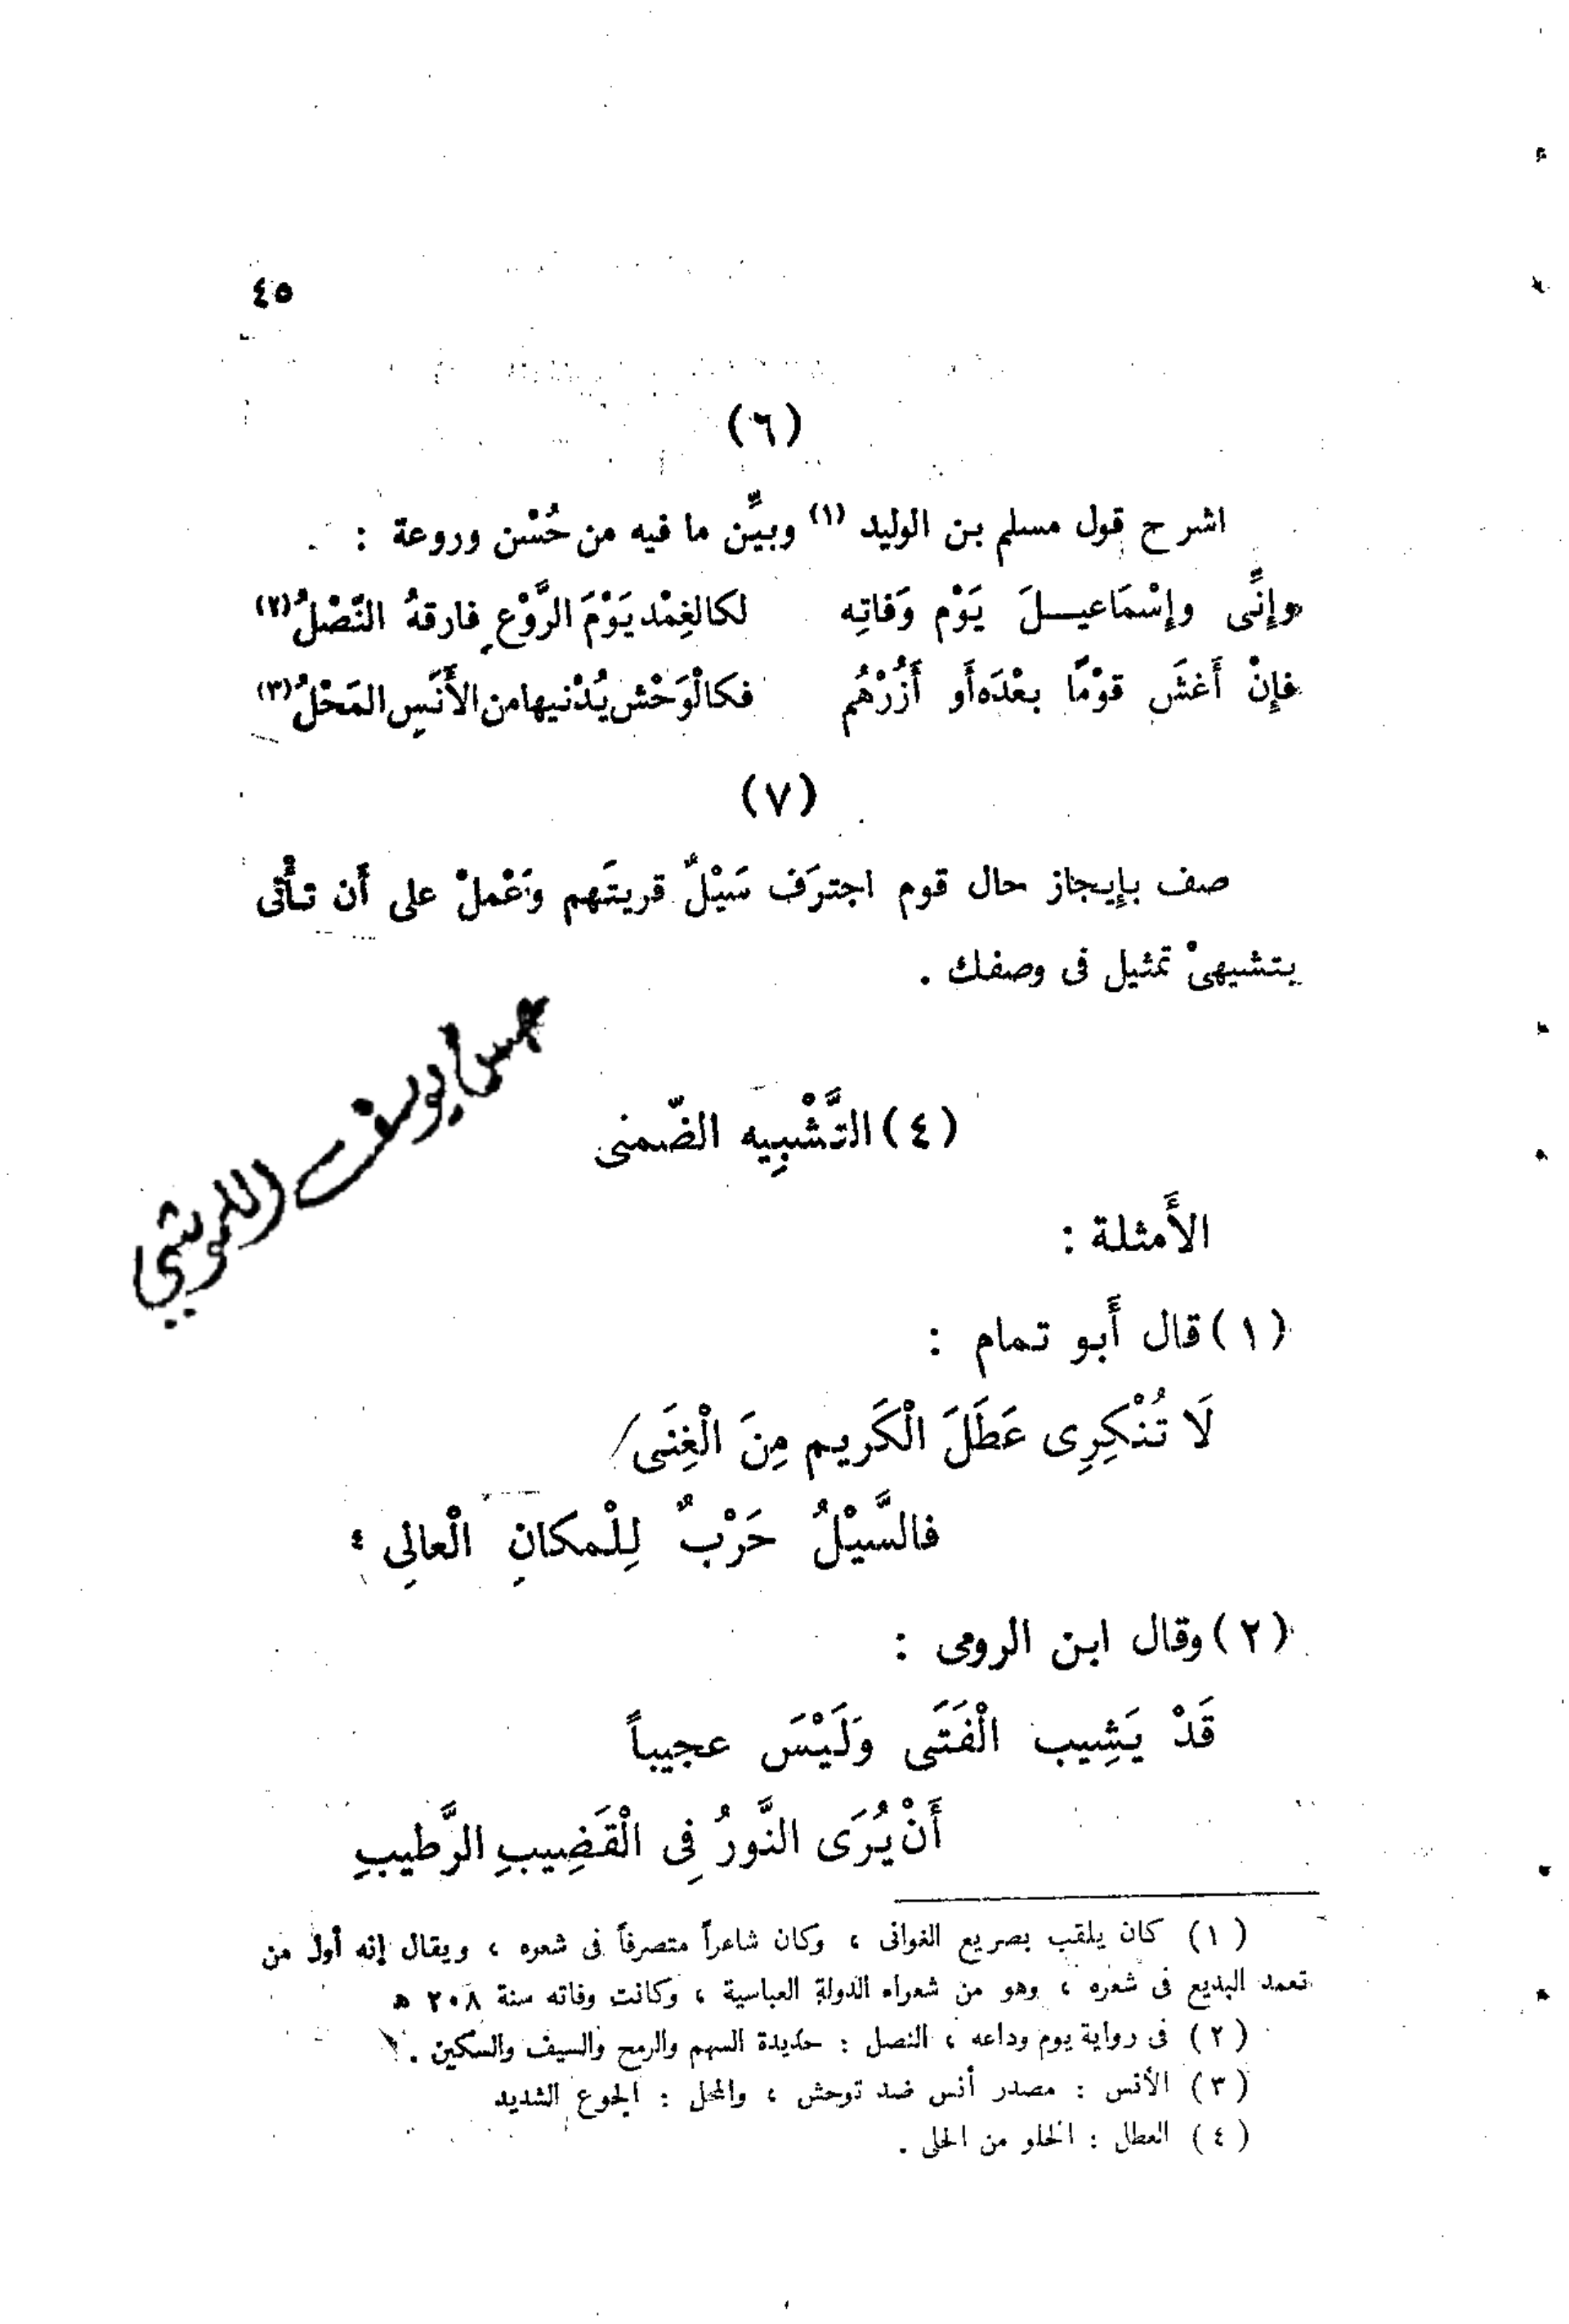 ٤٥
(٦)
اشرح قول مسلم بن الوليد (١) وبيِّن ما فيه من حُسْن وروعة :
وإنِّى وإسْمَاعيـــلَ يَوْم وَفاتِه لكالغِمْد يَوْمَ الرَّوْعِ فارقهُ النَّصْلُ (٢)
فإنْ أَغشَ قوْمًا بعْدَه أو أَزُرْهُم فكالْوَحْش يُدْنيها من الأَنَسِ المَحْلُ (٣)
(٧)
صف بإيجاز حال قوم اجترَف سَيْلٌ قريتَهم وَعْملْ على أَن تـأْتى
بتشبيهىْ تمثيل فى وصفك .
يوسف
(٤) التَّشْبِيه الضّمنى
الأَمثلة :
(١) قال أَبو تمام :
لَا تُنْكِرِى عَطَلَ الْكَريم مِنَ الْغِنَى /
فالسَّيْلُ حَرْبٌ لِلْمكانِ الْعالِى ٤
(٢) وقال ابن الرومى :
قَدْ يَشِيب الْفَتَى وَلَيْسَ عجيباً
أَنْ يُرَى النَّورُ فِى الْقَضِيبِ الرَّطيبِ
(١) كان يلقب بصريع الغوانى ، وكان شاعراً متصرفاً فى شعره ، ويقال إنه أول من
تعمد البديع فى شعره ، وهو من شعراء الدولة العباسية ، وكانت وفاته سنة ٢٠٨ ه
(٢) فى رواية يوم وداعه ، النصل : حديدة السهم والرمح والسيف والسكين .
(٣) الأنس : مصدر أنس ضد توحش ، والمحل : الجوع الشديد
(٤) العطل : الخلو من الحلى .